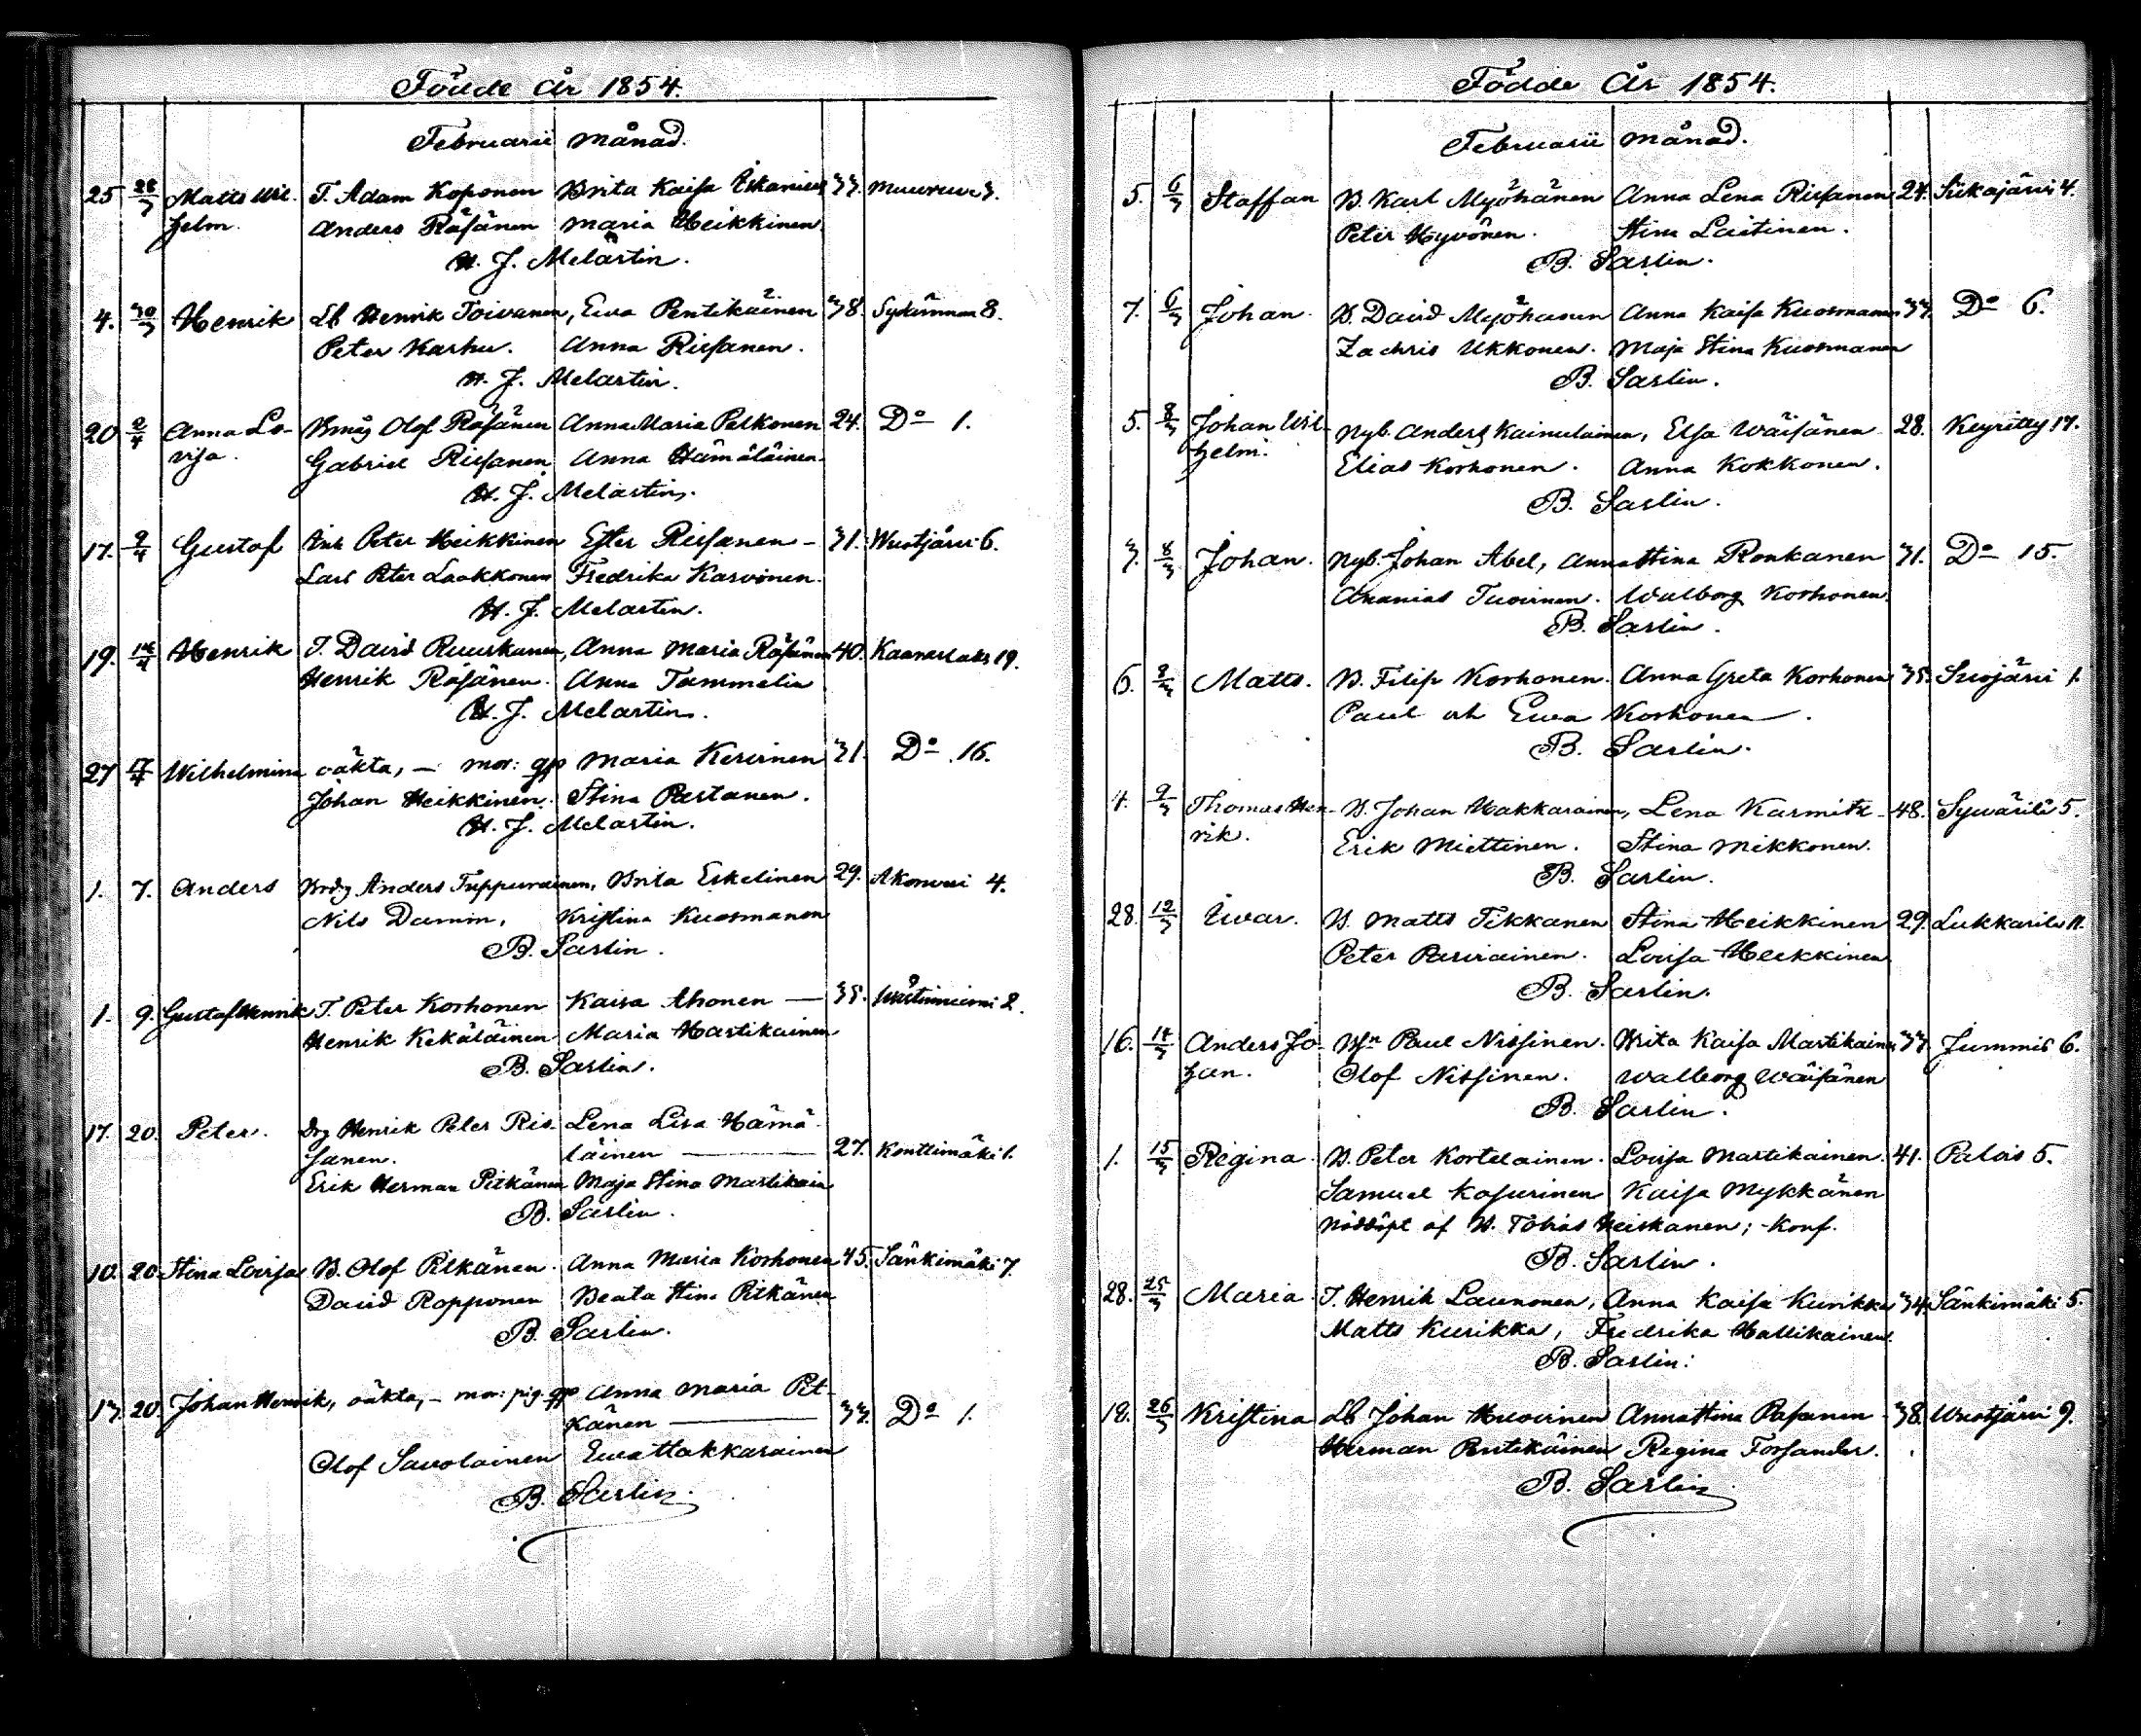 Födde År 1854.
Februarii månad.
25 28/3 Matts Wil- T. Adam Koponen Brita Kaisa Eskanius 33. Muuruu 3.
helm. Anders Räsänen Maria Heikkinen
H. J. Melartin.
4. 30/3 Henrik Lb Henrik Toivanen, Ewa Pentikäinen 38. 8.
Peter Karhu. Anna Riisanen.
H. J. Melartin.
20 2/4 Anna Lo- Olof Räsänen Anna Maria Pelkonen 24. Do 1.
visa. Gabriel Riisanen Anna Hämäläinen.
H. J. Melartin.
17. 9/4 Gustaf Peter Heikkinen Ester Riisanen - 31. Wuotjärvi 6.
Lars Peter Laakkonen Fredrika Karvonen.
H. J. Melartin.
19. 14/4 Henrik T. David Ruuskanen, Anna Maria Räsänen 40. Kaaraslaks 19.
Henrik Räsänen. Anna Tammelin
H. J. Melartin.
27 17/4 Wilhelmina oäkta, - mor: gp Maria Kervinen 31. Do 16.
Johan Heikkinen. Stina Partanen.
H. J. Melartin.
1. 7. Anders Anders Tuppurainen, Brita Eskelinen 29. Akonvesi 4.
Nils Damin, Kristina Kuosmanen
B. Sarlin.
1. 9. Gustaf Henrik T. Peter Korhonen Kaisa Ahonen — 35. 2.
Henrik Kekäläinen Maria Hartikainen
B. Sarlin.
17. 20. Peter. Drg Henrik Peter Rii- Lena Lisa Hämä-
sanen. läinen — 27. Konttimäki 1.
Erik Herman Pitkänen Maja Stina Martikain
B. Sarlin.
10. 20. Stina Lovisa B. Olof Pitkänen. Anna Maria Korhonen 45. Sänkimäki 7.
David Ropponen Beata Stina Pitkänen
B. Sarlin.
13. 20. Johan Henrik, oäkta, - mor: pig. gp Anna Maria Pit-
känen — 33. Do 1.
Olof Savolainen Ewa Hakkarainen
B. Sarlin.
Födde År 1854.
Februarii månad.
5. 6/3 Staffan B. Karl Myöhänen Anna Lena Riisanen 24. Siikajärvi 4.
Peter Hyvönen. Stina Laitinen.
B. Sarlin.
7. 6/3 Johan. B. David Myöhänen Anna Kaisa Kuosmanen 33. Do 6.
Zachris Ukkonen. Maja Stina Kuosmanen
B. Sarlin.
5. 8/3 Johan Wil- Nyb. Anders Kainulainen, Elsa Wäisänen 28. Keyritty 17.
helm. Elias Korhonen. Anna Kokkonen.
B. Sarlin.
3. 8/3 Johan. Nyb. Johan Abel, Anna Stina Ronkanen 31. Do 15.
Ananias Tuovinen. Walborg Korhonen.
B. Sarlin.
6. 8/3 Matts. B. Filip Korhonen. Anna Greta Korhonen 35. Suojärvi 1.
Paul och Ewa Korhonen.
B. Sarlin.
4. 9/3 Thomas Hen- B. Johan Hakkarainen, Lena Karmitz - 48. Sywärilä 5.
rik. Erik Miettinen. Stina Mikkonen.
B. Sarlin.
28. 12/3 Iwar. B. Matts Tikkanen Stina Heikkinen 29. Lukkarila 11.
Peter Parviainen. Lovisa Heikkinen
B. Sarlin.
16. 14/3 Anders Jo- Bsn Paul Nissinen. Brita Kaisa Martikainen 33. Jummis 6.
han. Olof Nissinen. Walborg Wäisänen
B. Sarlin.
1. 15/3 Regina. B. Peter Kortelainen. Lovisa Martikainen. 41. Palois 5.
Samuel Kasurinen Kaisa Mykkänen
Nöddöpt af B. Tobias Heiskanen; - Konf.
B. Sarlin.
28. 25/3 Maria. T. Henrik Launonen, Anna Kaisa Kurikka 34. Sänkimäki 5.
Matts Kurikka, Fredrika Hallikainen.
B. Sarlin.
18. 26/3 Kristina Lb Johan Huovinen Anna Stina Pasanen 38. Wuotjärvi 9.
Herman Pentikäinen Regina Forsander.
B. Sarlin.